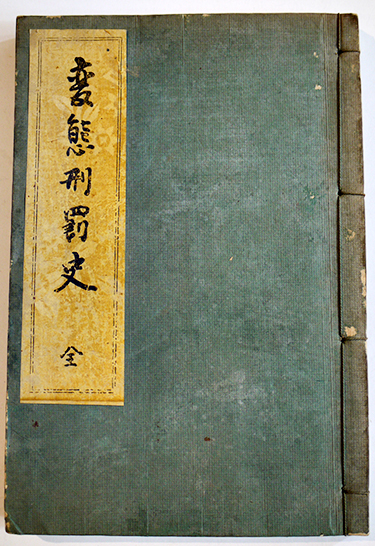 変態刑罰史
全